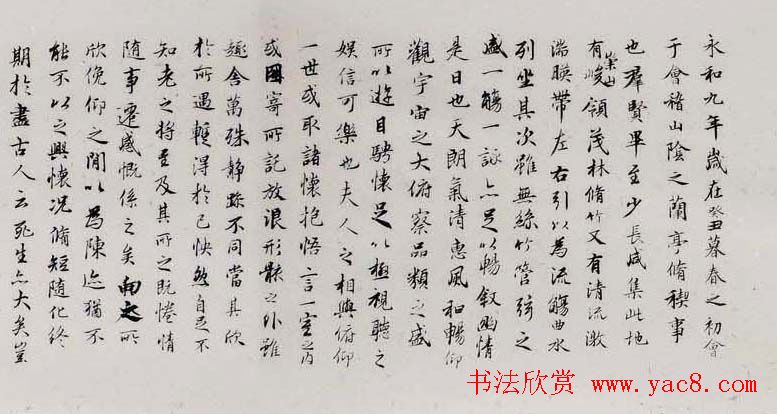 永和九年歲在癸丑暮春之初會
于會稽山陰之蘭亭脩稧事
也羣賢畢至少長咸集此地
有崇山峻領茂林脩竹又有清流激
湍暎帶左右引以為流觴曲水
列坐其次雖無絲竹管弦之
盛一觴一詠亦足以暢叙幽情
是日也天朗氣清惠風和暢仰
觀宇宙之大俯察品類之盛
所以遊目騁懷足以極視聽之
娛信可樂也夫人之相與俯仰
一世或取諸懷抱悟言一室之內
或因寄所託放浪形骸之外雖
趣舍萬殊靜躁不同當其欣
於所遇蹔得於己怏然自足不
知老之將至及其所之既惓情
隨事遷感慨係之矣向之所
欣俛仰之閒以為陳迹猶不
能不以之興懷況脩短隨化終
期於盡古人云死生亦大矣豈
书法欣赏 www.yac8.com